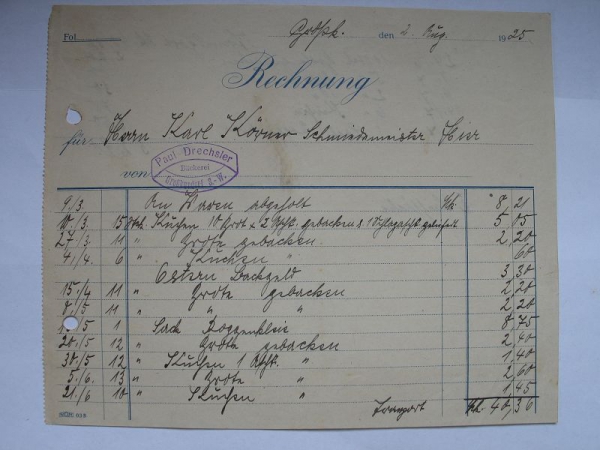 Fol. Großk. den 2. Aug. 1925
Rechnung
für Herrn Karl Körner Schmiedemeister Hier
von Paul Drechsler
Bäckerei
9/3. An Waren abgeholt Mk. 8,21
10/3. 15 Stck. Kuchen 10 Brot 2 gebacken 5,05
27/3. 11 " Brote gebacken. 2,20
4/4 6 " Kuchen " 60
Ostern Backgeld 3,30
15./4 11 " Brote gebacken 2,20
8./5 11 " " " 2,20
/5 1 " Sack Roggenkleie 8,75
20/5 12 " Brote gebacken 2,40
30/5 12 " Kuchen 1 " 1,40
5./6. 13 " Brote " 2,60
21./6 10 " Kuchen " 1,45
Transport Mk. 40,36